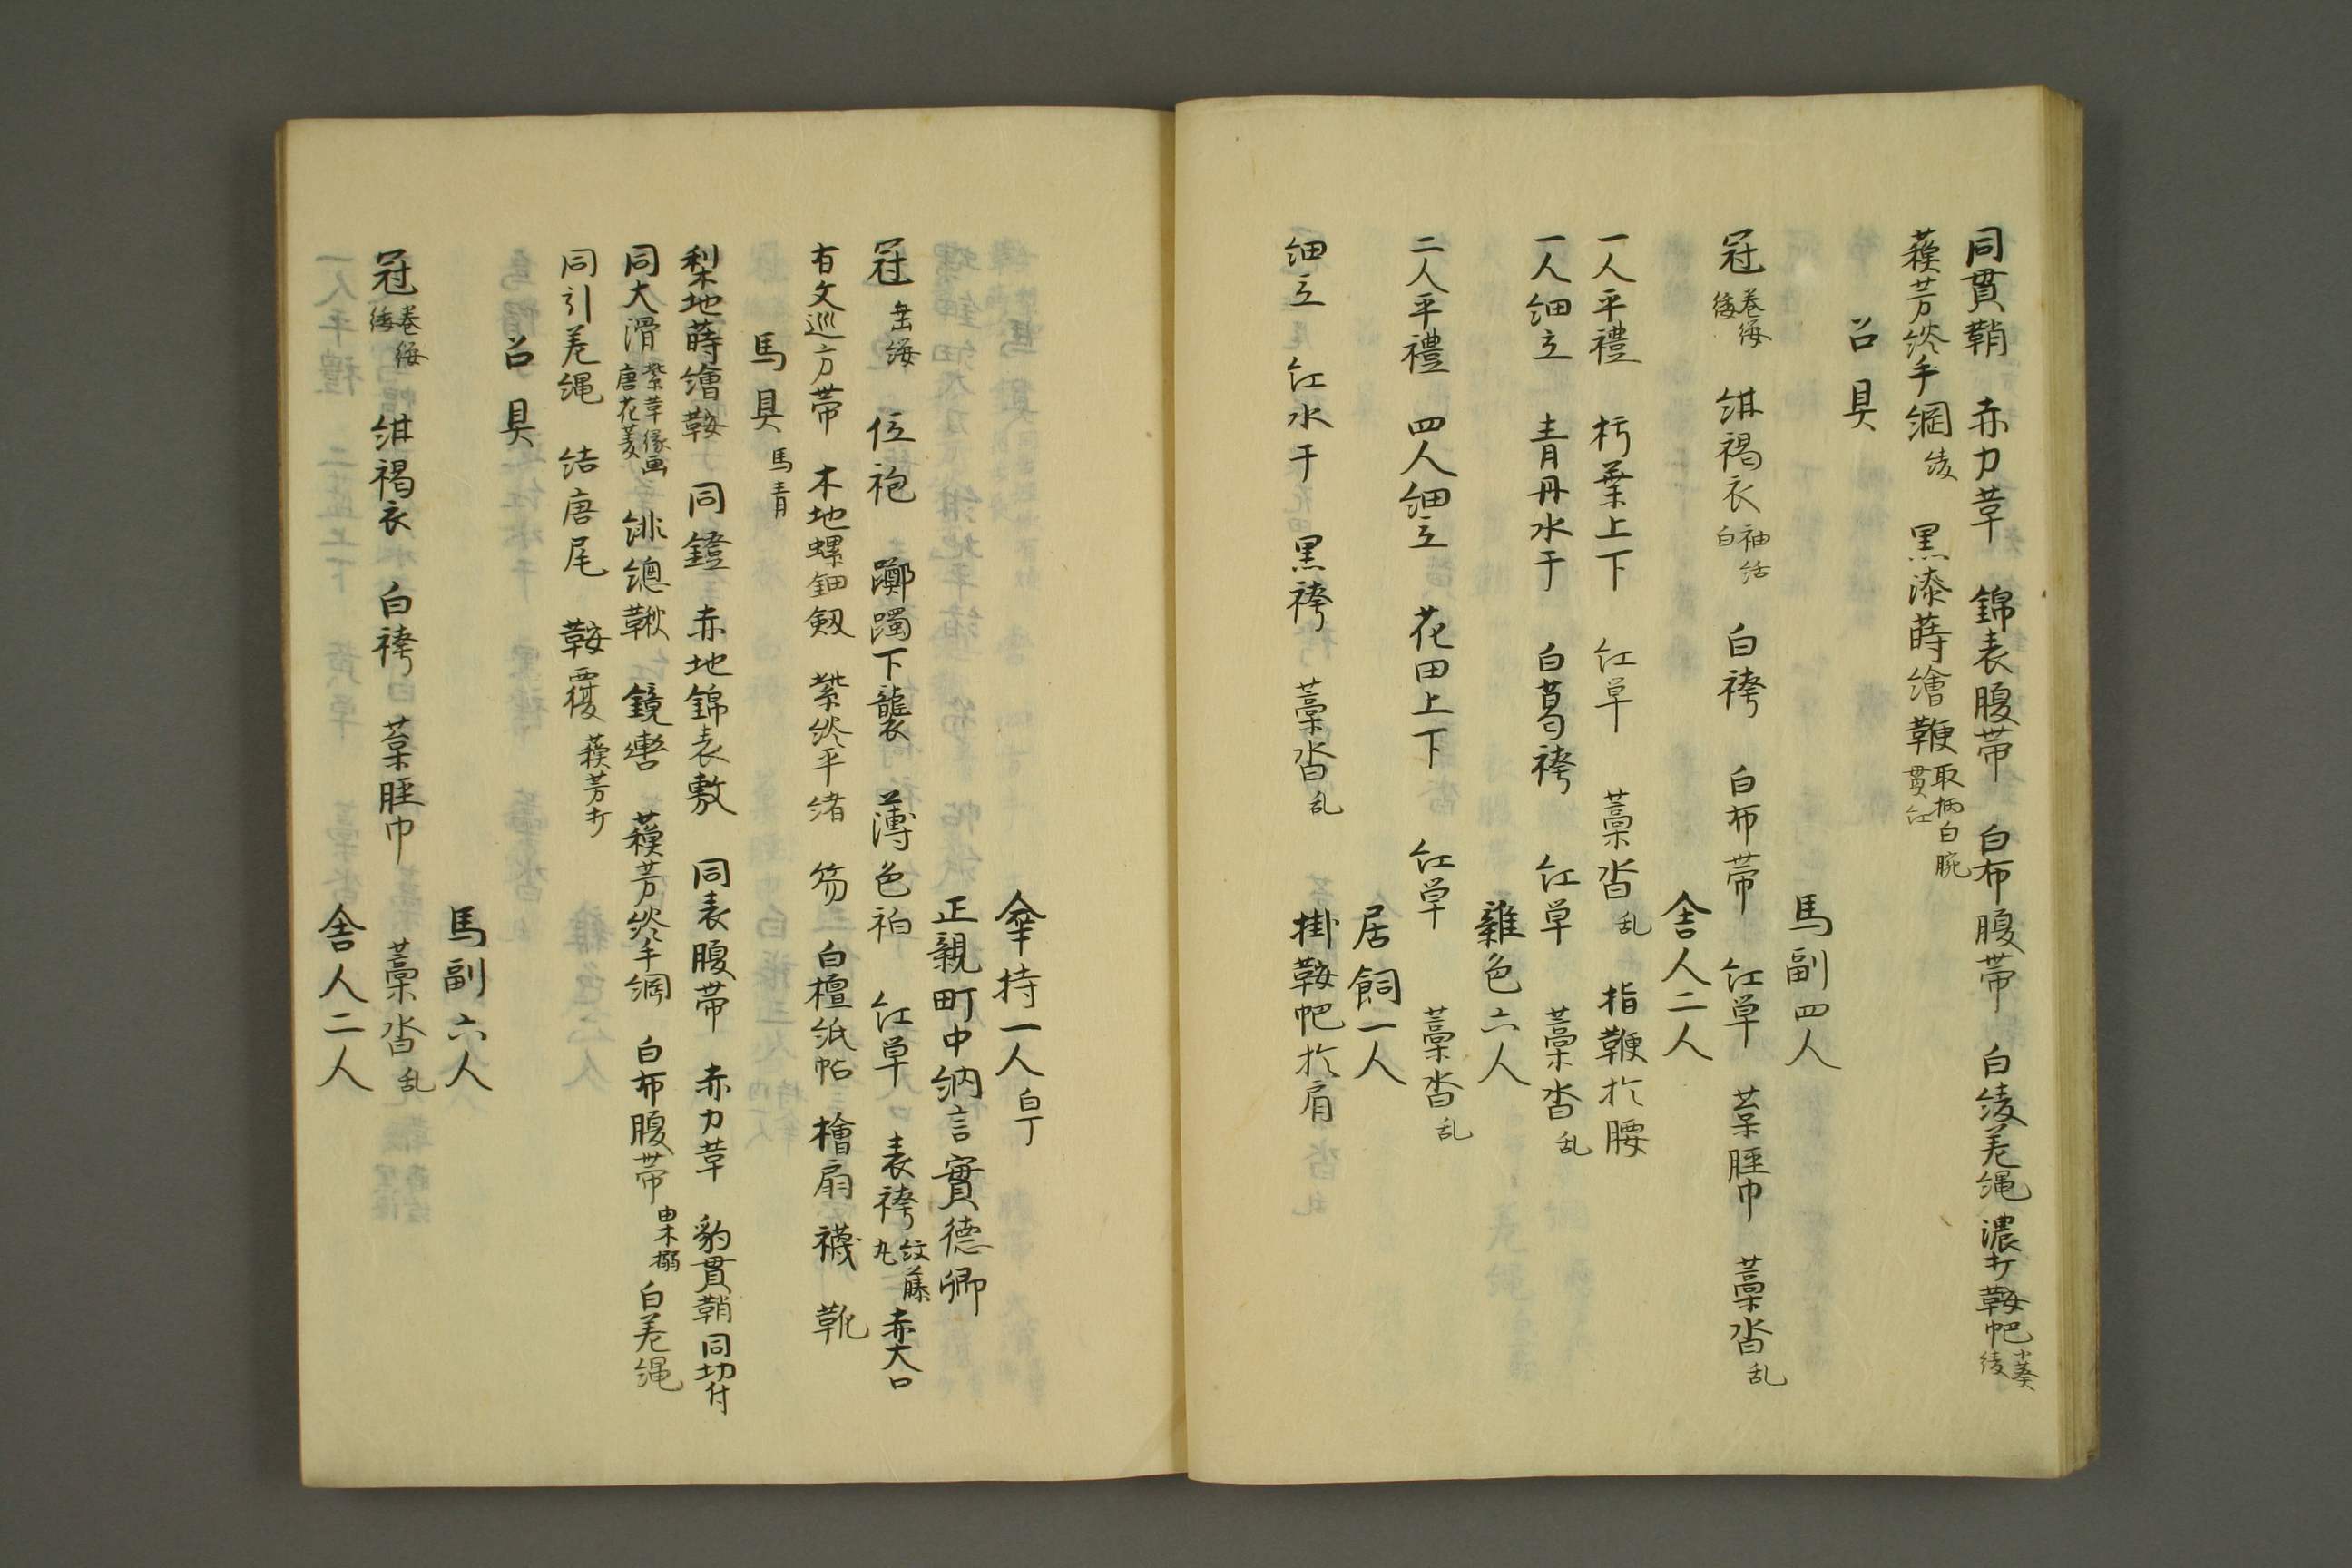 同貫鞘 赤力革 錦表腹帯 白布腹帯 白綾差縄 濃打鞍帊 小葵綾
蘓芳綾手綱 綾 黒漆蒔繪鞭 取柄白腕貫紅
召具
馬副四人
冠 巻纓緌 紺褐衣 袖括白 白袴 白布帯 紅単 葉脛巾 藁沓 乱
舎人二人
一人平禮 朽葉上下 紅単 藁沓 乱 指鞭於腰
一人細立 青丹水干 白葛袴 紅単 藁沓 乱
雜色六人
二人平禮 四人細立 花田上下 紅単 藁沓 乱
居飼一人
細立 紅水干 黒袴 藁沓 乱 掛鞍帊於肩
傘持一人 白丁
正親町中納言實德卿
冠 垂纓 位袍 躑躅下襲 薄色衵 紅単 表袴 紋藤丸 赤大口
有文巡方帯 木地螺鈿劔 紫綾平緒 笏 白檀紙帖 檜扇 襪 靴
馬具 馬青
梨地蒔繪鞍 同鐙 赤地錦表敷 同表腹帯 赤力革 豹貫鞘 同切付
同大滑 紫革縁画唐花菱 緋總鞦 鏡轡 蘓芳綾手綱 白布腹帯 白差縄
同引差縄 結唐尾 鞍覆 蘓芳打
召具
馬副六人
冠 巻纓緌 紺褐衣 白袴 葉脛巾 藁沓 乱
舎人二人